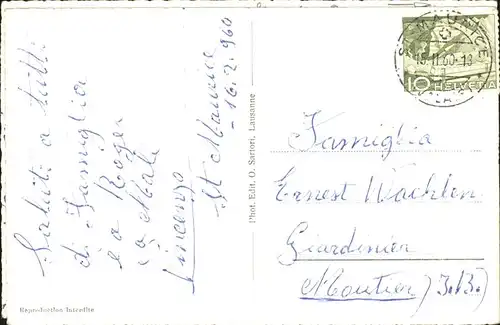 St Maurice
- 16.2.960
Saluti a tutti
di Famiglia
e a Roger
Vincenzo
Phot. Edit. O. Sartori, Lausanne
Reproduction Interdite
ST MAURICE
15.II.60-18
10 HELVETIA
Famiglia
Ernest Wachten
Giardinier
Moutier) J.B.)